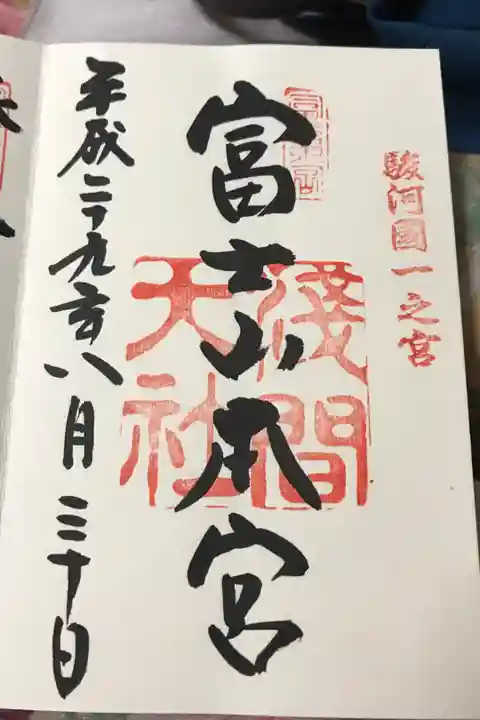 駿河國一之宮
富士山本宮
淺間
大社
平成二十九年八月三十日